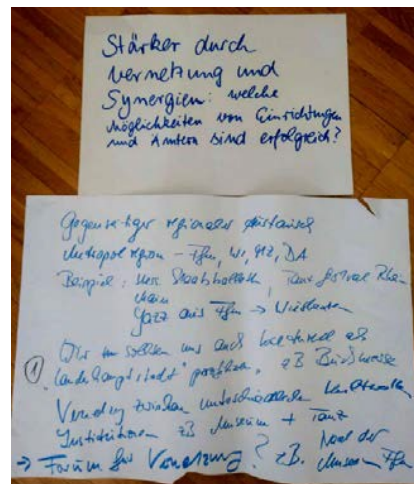 Stärker durch
Vernetzung und
Synergien: welche
möglichkeiten von Einrichtungen
und Ämtern sind erfolgreich?
Gegenseitiger regionaler Austausch
Metropolregion – Ffm, Wi, Mz, DA
Beispiel: Hess. Staatsballett, Tanzfestival Rhein
Main
Jazz aus Ffm → Wiesbaden
① Wir sollten uns auch kulturell als
"Landeshauptstadt" zB
zwischen unterschiedlichen
Institutionen zB Museum + Tanz
→ Forum für Vernetzung? zB. Nacht der
Museen Ffm